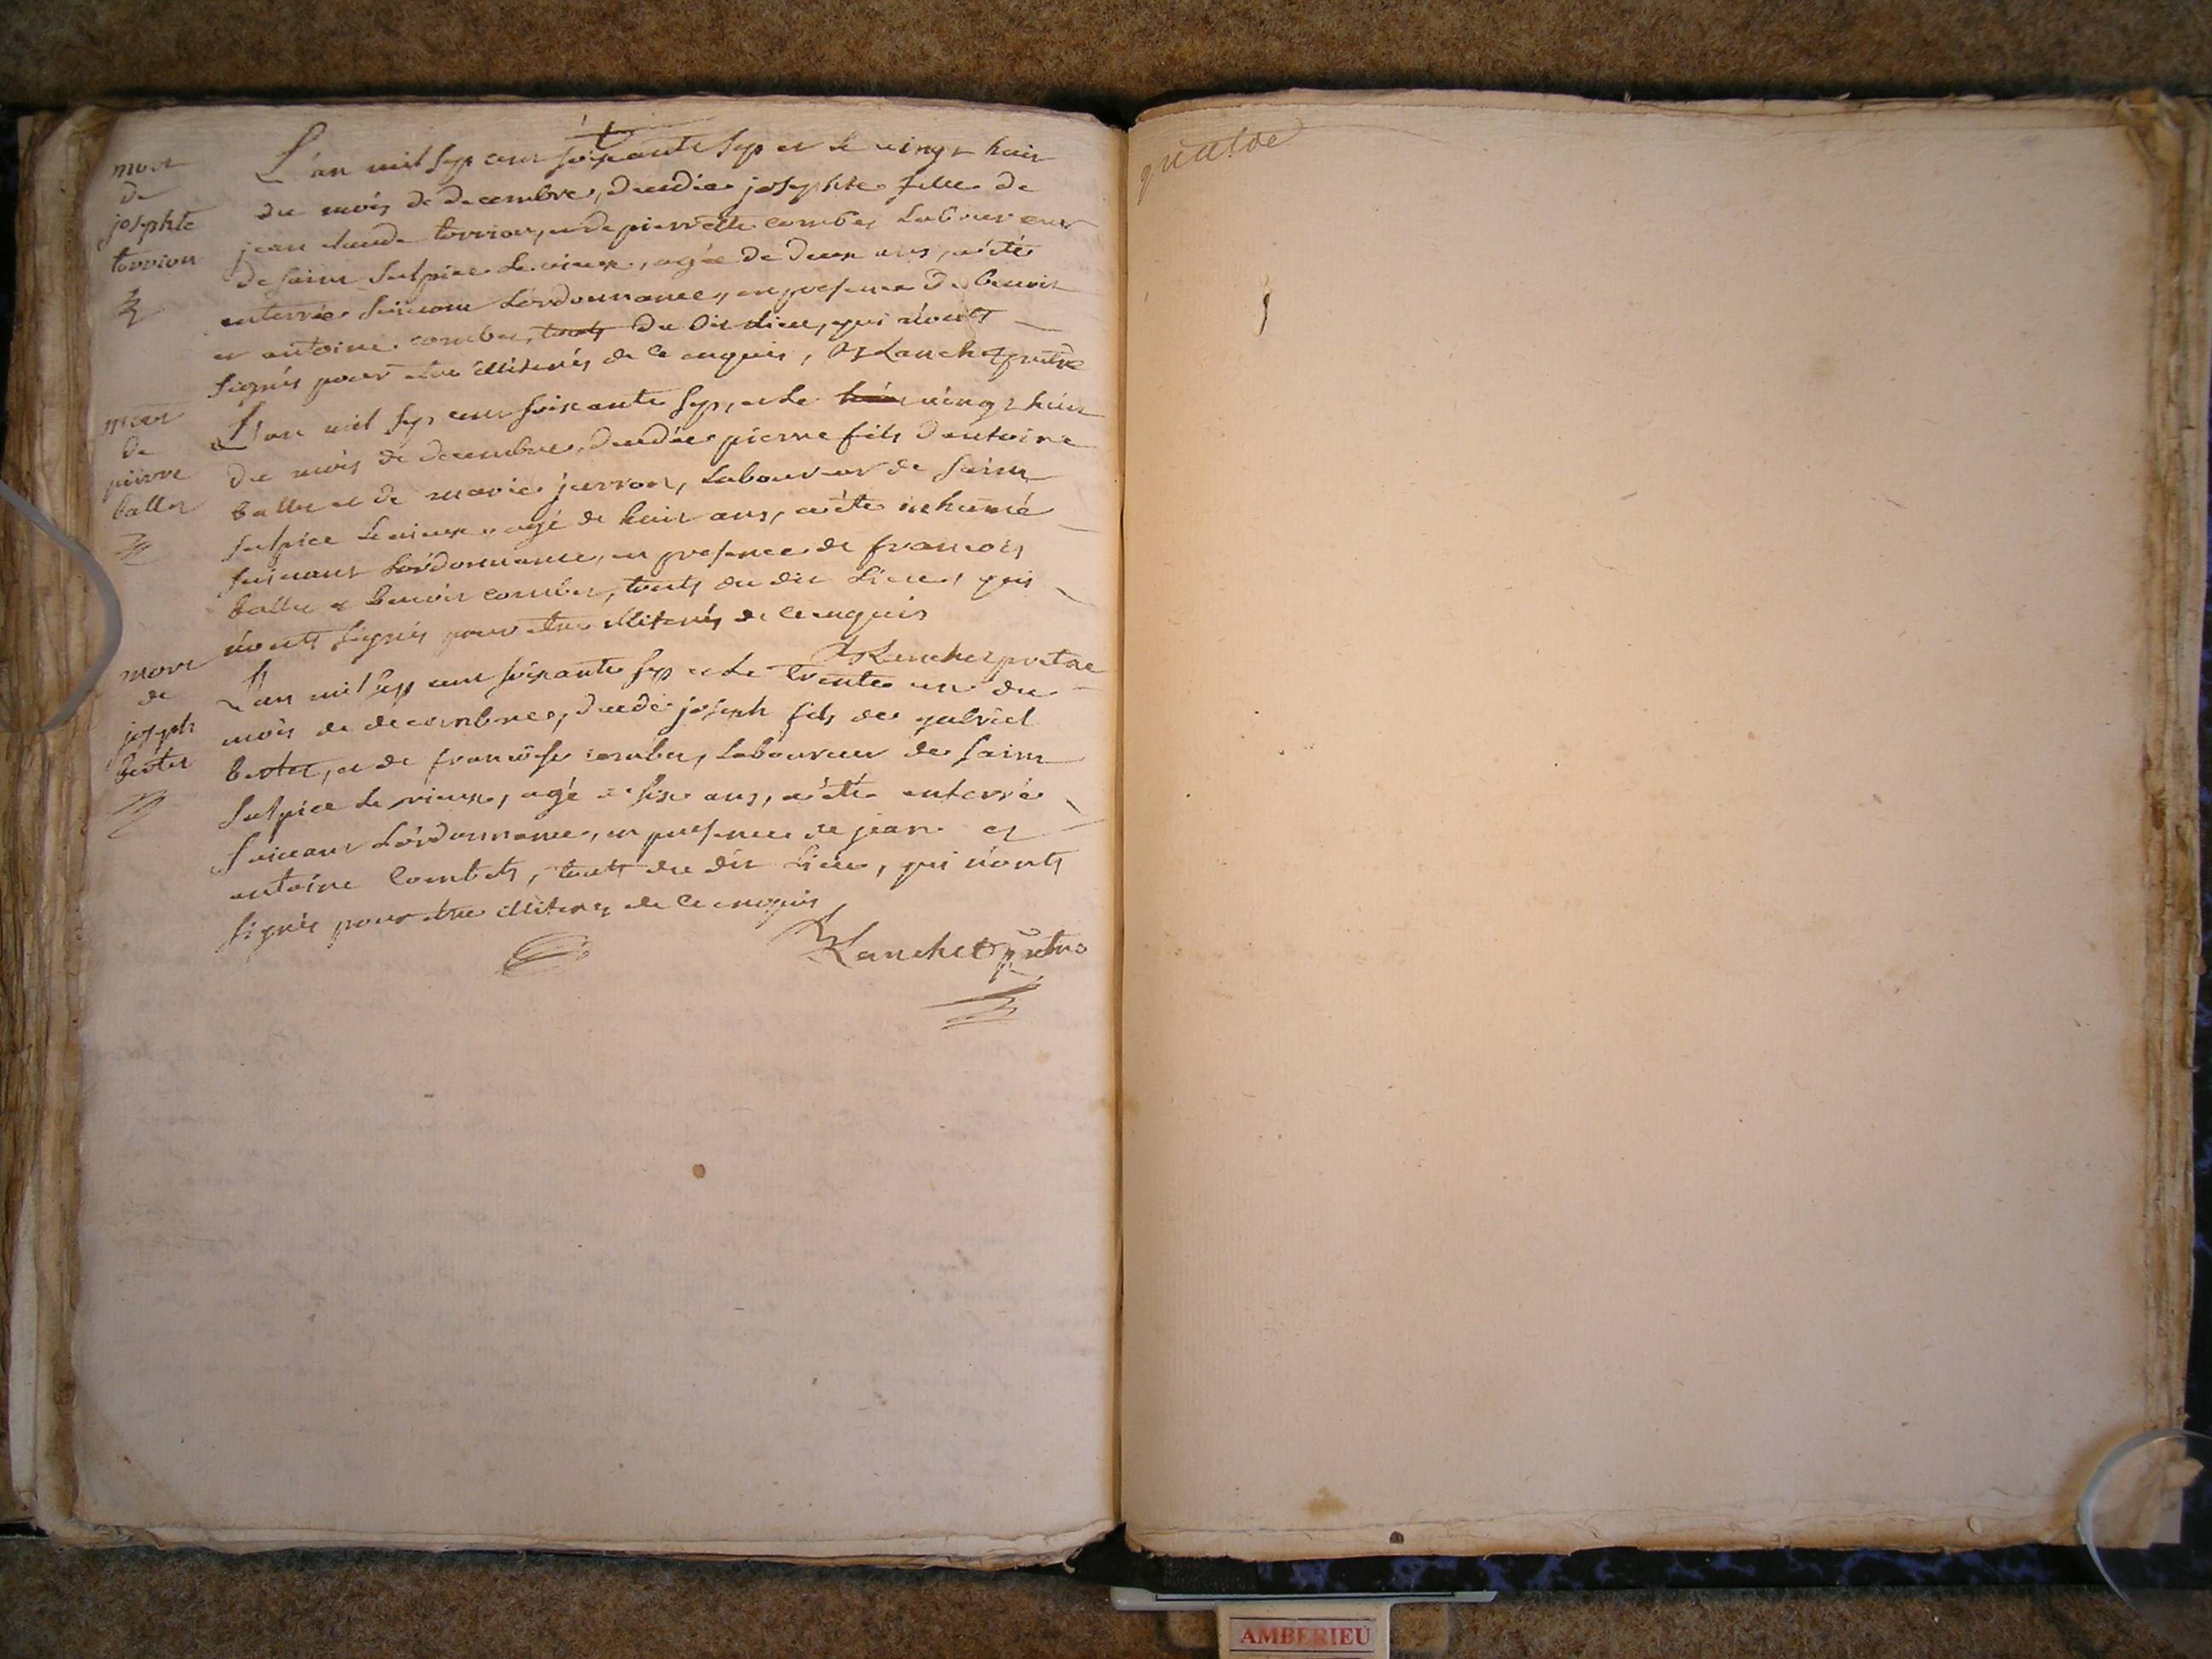 mort
de
josephte
torrion
L'an mil sept cent soixante sept et le vingt huit
du mois de decembre, decedée josephte fille de
jean claude torrion, et de pierrette combet laboureur
de saint sulpice le vieux, agée de deux ans, a été
enterrée suivant l'ordonnance, en presence de benoit
et antoine combet, touts du dit lieu, qui n'onts
signés pour etre illiterés de ce enquis, Lanchet pretre
mort
de
pierre
ballet
L'an mil sept cent soixante sept, et le vingt huit
du mois de decembre, decedée pierre fils d'antoine
ballet et de marie jurron, laboureur de saint
sulpice le vieux, agé de huit ans, a été inhumé
suivant l'ordonnance, en presence de francois
ballet et benoit combet, touts du dit lieu, qui
n'onts signés pour etre illiterés de ce enquis
Lanchet pretre
mort
de
joseph
bertet
L'an mil sept cent soixante sept et le trente un du
mois de decembre, decedé joseph fils de gabriel
bertet, et de francoise combet, laboureur de saint
sulpice le vieux, agé de six ans, a été enterré
suivant l'ordonnance, en presence de jean et
antoine Combets, touts du dit lieu, qui n'onts
signés pour etre illiterés de ce enquis
Lanchet pretre
AMBERIEU